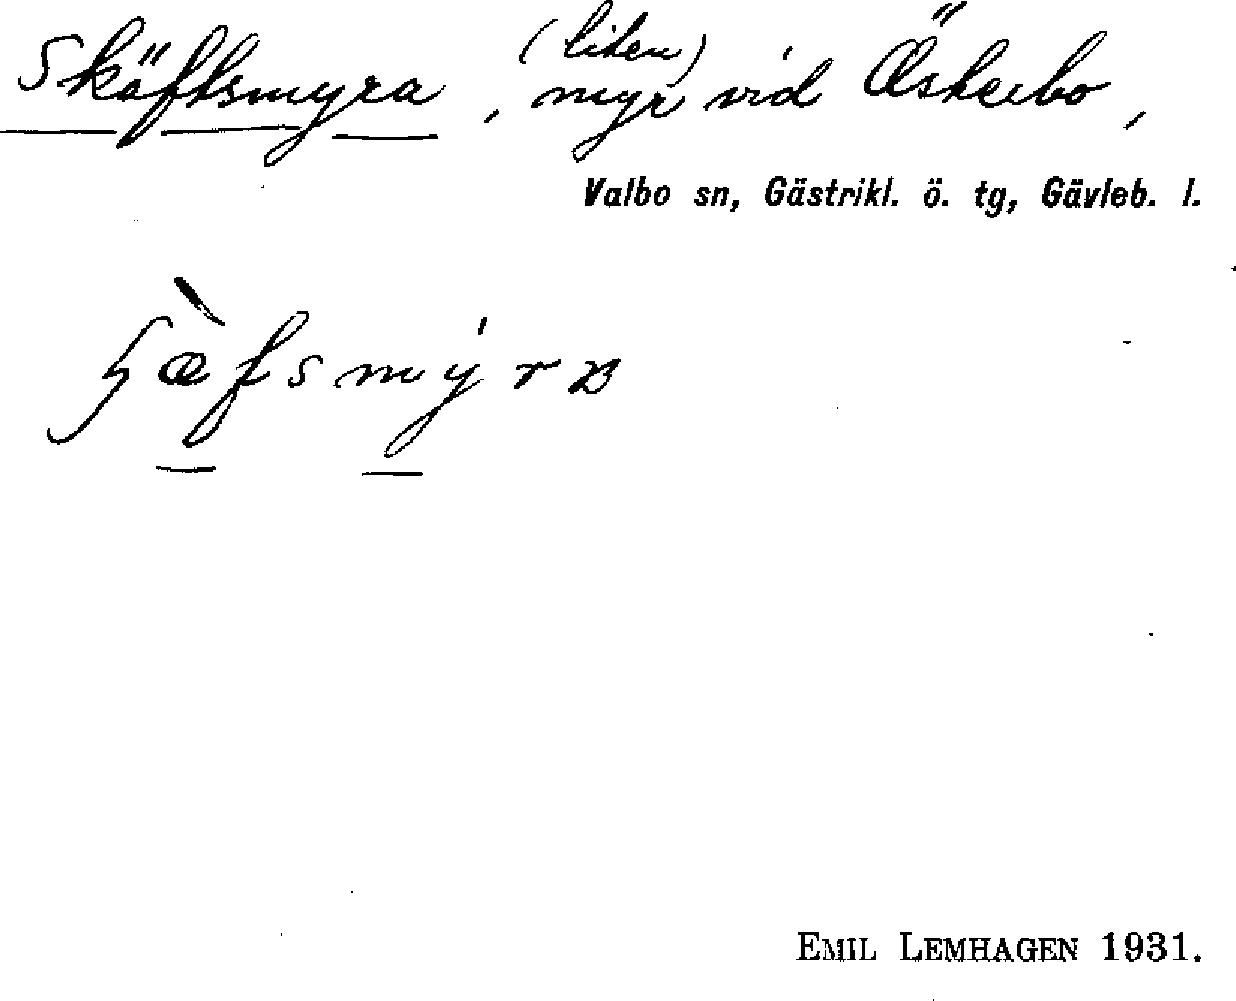 Skäftsmyra, (liten) myr vid Österbo,
Valbo sn, Gästrikl. ö. tg, Gävleb. l.
EMIL LEMHAGEN 1931.